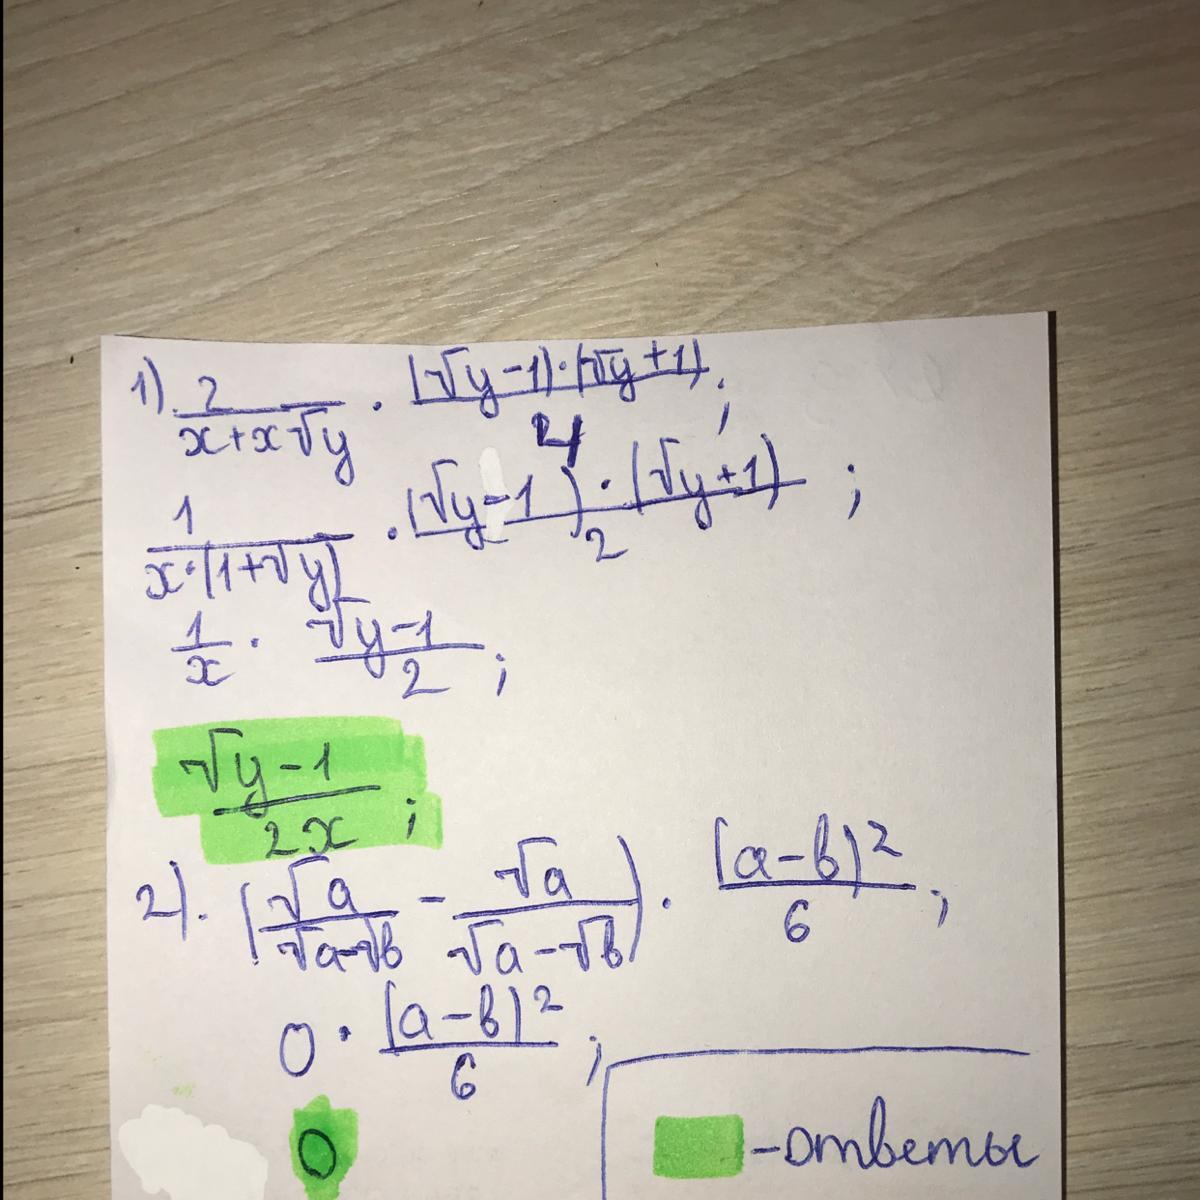 1). 2/(x+x√y) · ((√y-1)·(√y+1))/4;
1/(x·(1+√y)) · ((√y-1)·(√y+1))/2;
1/x · (√y-1)/2;
(√y-1)/(2x);
2). (√a/(√a-√b) - √a/(√a-√b)) · (a-b)²/6;
0 · (a-b)²/6;
0
-ответы